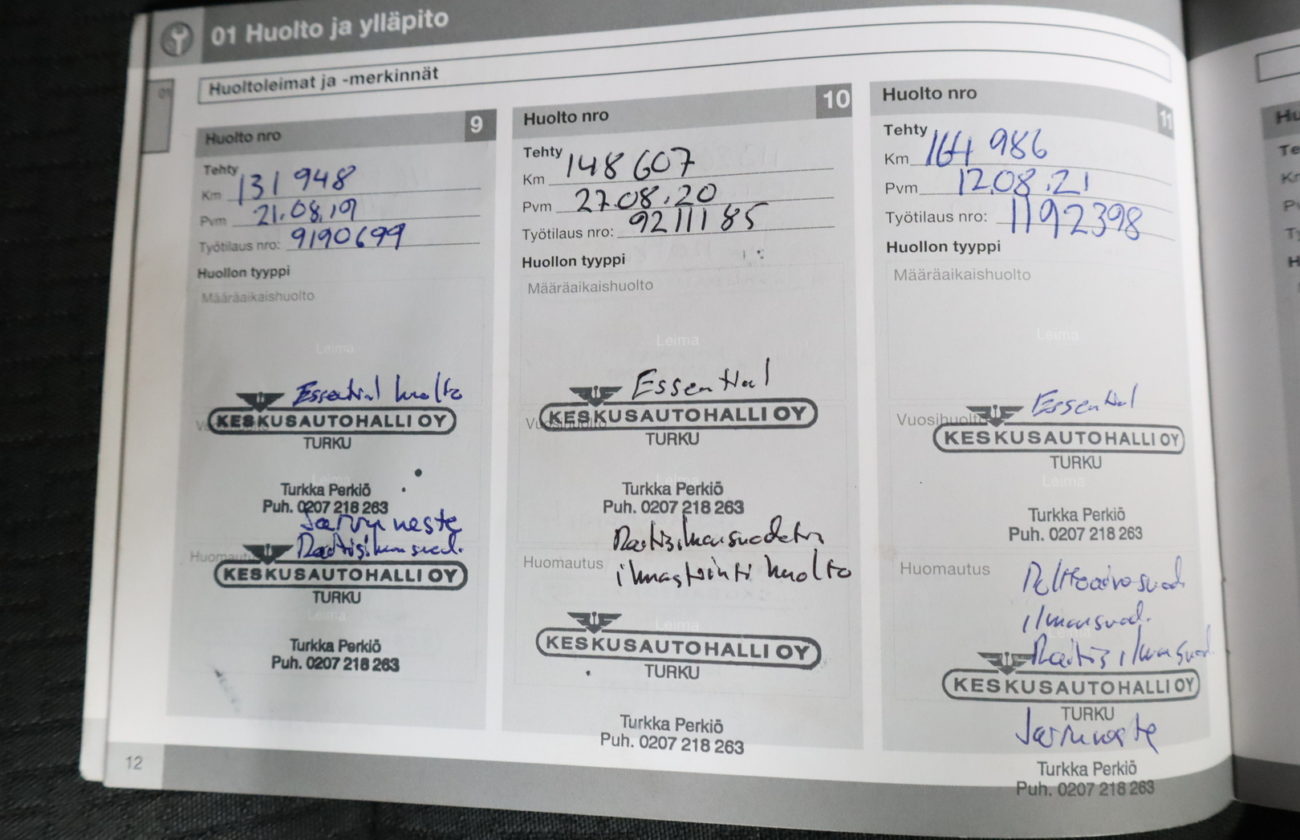 01 Huolto ja ylläpito
01
Huoltoleimat ja -merkinnät
Huolto nro 9
Tehty
Km 131 948
Pvm 21.08.19
Työtilaus nro: 9190699
Huollon tyyppi
Määräaikaishuolto
Leima
Essential huolto
KESKUSAUTOHALLI OY
TURKU
Turkka Perkiö
Puh. 0207 218 263
Jarruneste
Raitisilmansuod.
Huomautus
KESKUSAUTOHALLI OY
TURKU
Leima
Turkka Perkiö
Puh. 0207 218 263
Huolto nro 10
Tehty
Km 148 607
Pvm 27.08.20
Työtilaus nro: 9211185
Huollon tyyppi
Määräaikaishuolto
Leima
Essential
Vuosihuolto
KESKUSAUTOHALLI OY
TURKU
Turkka Perkiö
Puh. 0207 218 263
Raitisilmansuodatin
Huomautus
ilmastointi huolto
Leima
KESKUSAUTOHALLI OY
TURKU
Turkka Perkiö
Puh. 0207 218 263
Huolto nro 11
Tehty
Km 164 986
Pvm 12.08.21
Työtilaus nro: 1192398
Huollon tyyppi
Määräaikaishuolto
Leima
Essential
Vuosihuolto
KESKUSAUTOHALLI OY
TURKU
Leima
Turkka Perkiö
Puh. 0207 218 263
Huomautus
Polttoainesuod.
ilmansuod.
Raitisilmasuod.
KESKUSAUTOHALLI OY
TURKU
Jarruneste
Turkka Perkiö
Puh. 0207 218 263
12